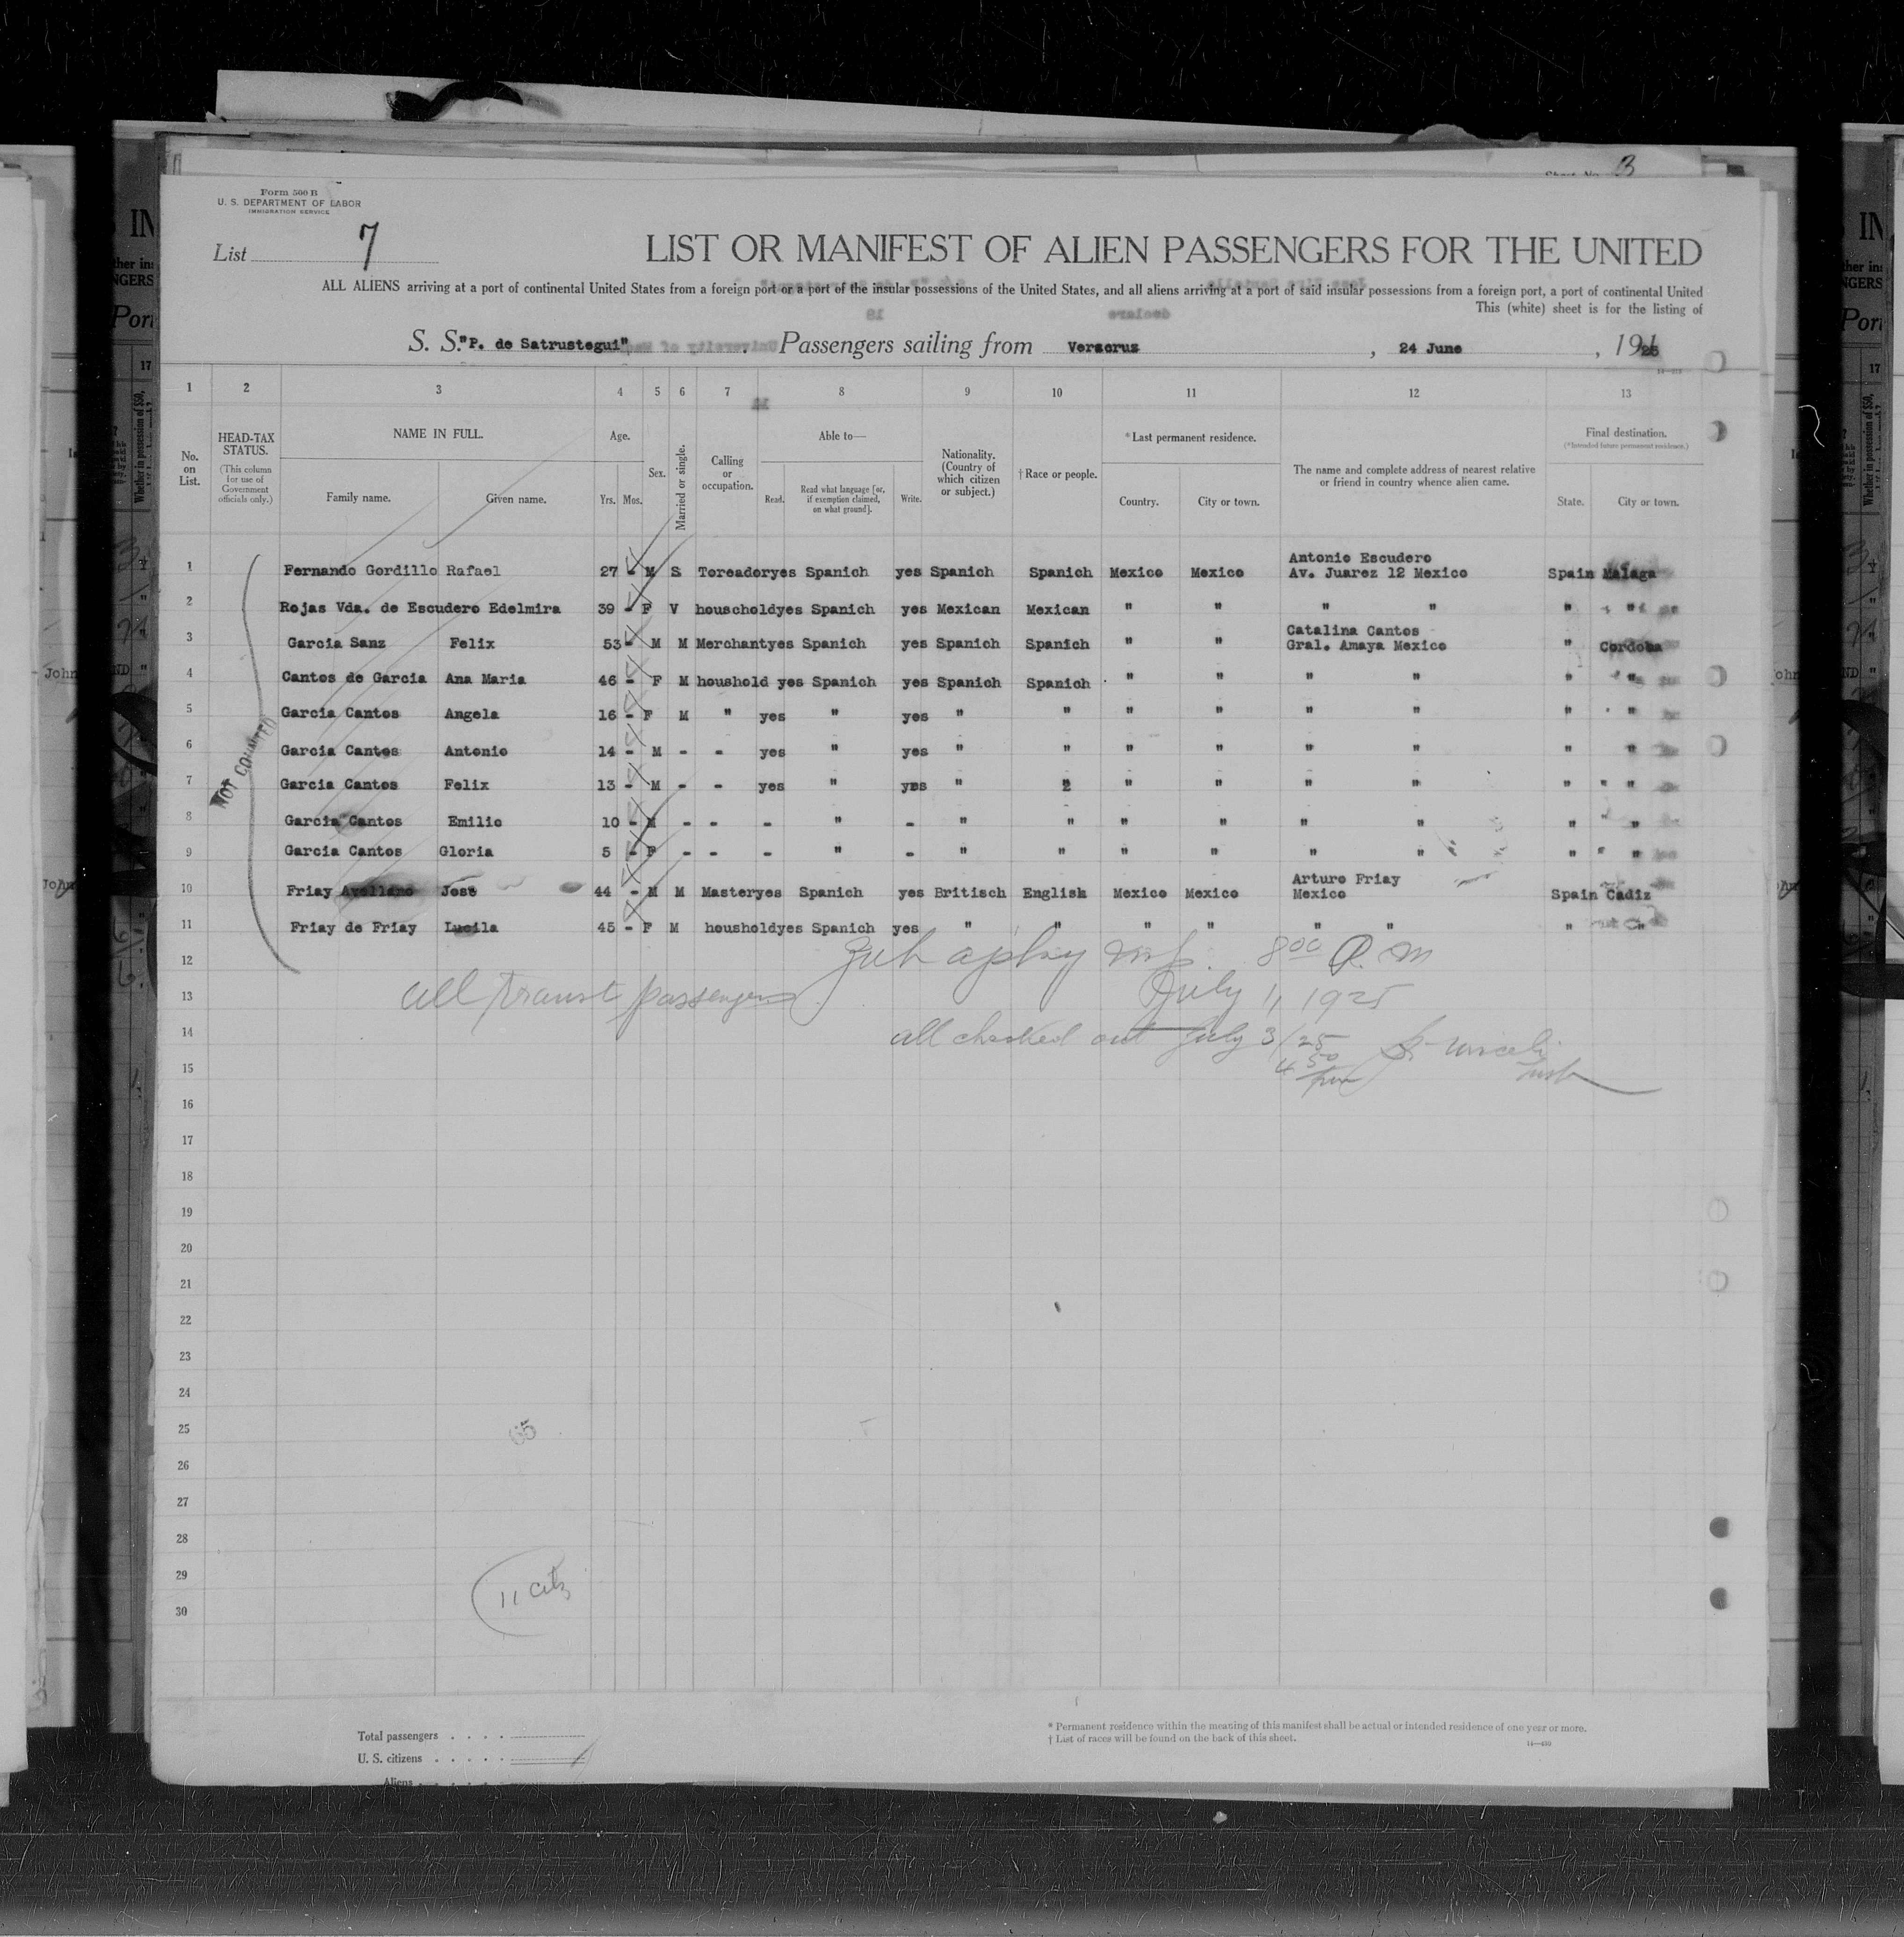 Form 500 B
U. S. DEPARTMENT OF LABOR
IMMIGRATION SERVICE
List 7
LIST OR MANIFEST OF ALIEN PASSENGERS FOR THE UNITED
ALL ALIENS arriving at a port of continental United States from a foreign port or a port of the insular possessions of the United States, and all aliens arriving at a port of said insular possessions from a foreign port, a port of continental United
This (white) sheet is for the listing of
S. S. "P. de Satrustegui" Passengers sailing from Veracruz , 24 June , 1925
1 2 3 4 5 6 7 8 9 10 11 12 13
No. on List.
HEAD-TAX STATUS.
(This column for use of Government officials only.)
NAME IN FULL.
Family name. Given name.
Age.
Yrs. Mos.
Sex.
Married or single.
Calling or occupation.
Able to—
Read. Read what language [or, if exemption claimed, on what ground]. Write.
Nationality. (Country of which citizen or subject.)
† Race or people.
* Last permanent residence.
Country. City or town.
The name and complete address of nearest relative or friend in country whence alien came.
Final destination.
(*Intended future permanent residence.)
State. City or town.
Antonio Escudero
1 Fernando Gordillo Rafael 27 - M S Toreador yes Spanich yes Spanich Spanich Mexico Mexico Av. Juarez 12 Mexico Spain Malaga
2 Rojas Vda. de Escudero Edelmira 39 - F V household yes Spanich yes Mexican Mexican " " " " " "
Catalina Cantos
3 Garcia Sanz Felix 53 - M M Merchant yes Spanich yes Spanich Spanich " " Gral. Amaya Mexico " Cordoba
4 Cantos de Garcia Ana Maria 46 - F M houshold yes Spanich yes Spanich Spanich " " " " " "
5 Garcia Cantos Angela 16 - F M " yes " yes " " " " " " " "
6 Garcia Cantos Antonio 14 - M - - yes " yes " " " " " " " "
7 Garcia Cantos Felix 13 - M - - yes " yes " " " " " " " "
8 Garcia Cantos Emilio 10 - M - - - " - " " " " " " " "
9 Garcia Cantos Gloria 5 - F - - - " - " " " " " " " "
Arturo Friay
10 Friay Avellano Jose 44 - M M Master yes Spanich yes Britisch English Mexico Mexico Mexico Spain Cadiz
11 Friay de Friay Lucila 45 - F M houshold yes Spanich yes " " " " " " " "
NOT COUNTED
12 8 00 A. M
13 all transt passengers July 1, 1925
14 all checked out July 3/25
15 4 50 pm
16
17
18
19
20
21
22
23
24
25
65
26
27
28
29
11 Cits
30
Total passengers
U. S. citizens
Aliens
* Permanent residence within the meaning of this manifest shall be actual or intended residence of one year or more.
† List of races will be found on the back of this sheet.